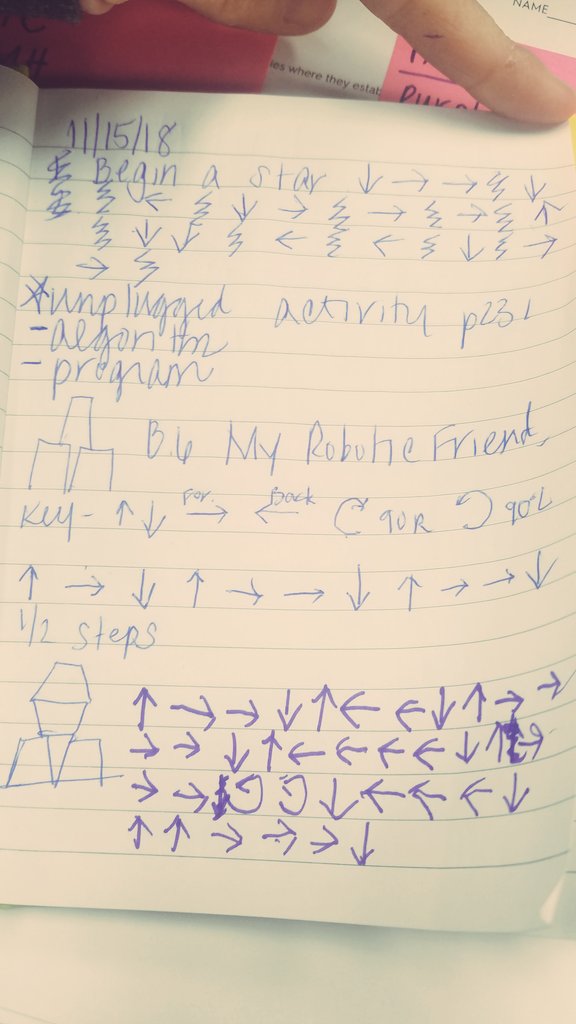 NAME
ies where they estab
11/15/18
Begin a star ↓ → → ↓
← ↓ → → → ↑
↓ ↓ ← ← ↓ →
→
*unplugged activity p231
- algorithm
- program
B.6 My Robotic Friend
Key - ↑ ↓ For. → Back ← ↻ 90R ↺ 90°L
↑ → ↓ ↑ → → ↓ ↑ → → ↓
1/2 steps
↑ → → ↓ ↑ ← ← ↓ ↑ → →
→ → ↓ ↑ ← ← ← ← ↓ ↑ →
→ → ↺ ↺ ↓ ← ← ← ↓
↑ ↑ → → → ↓